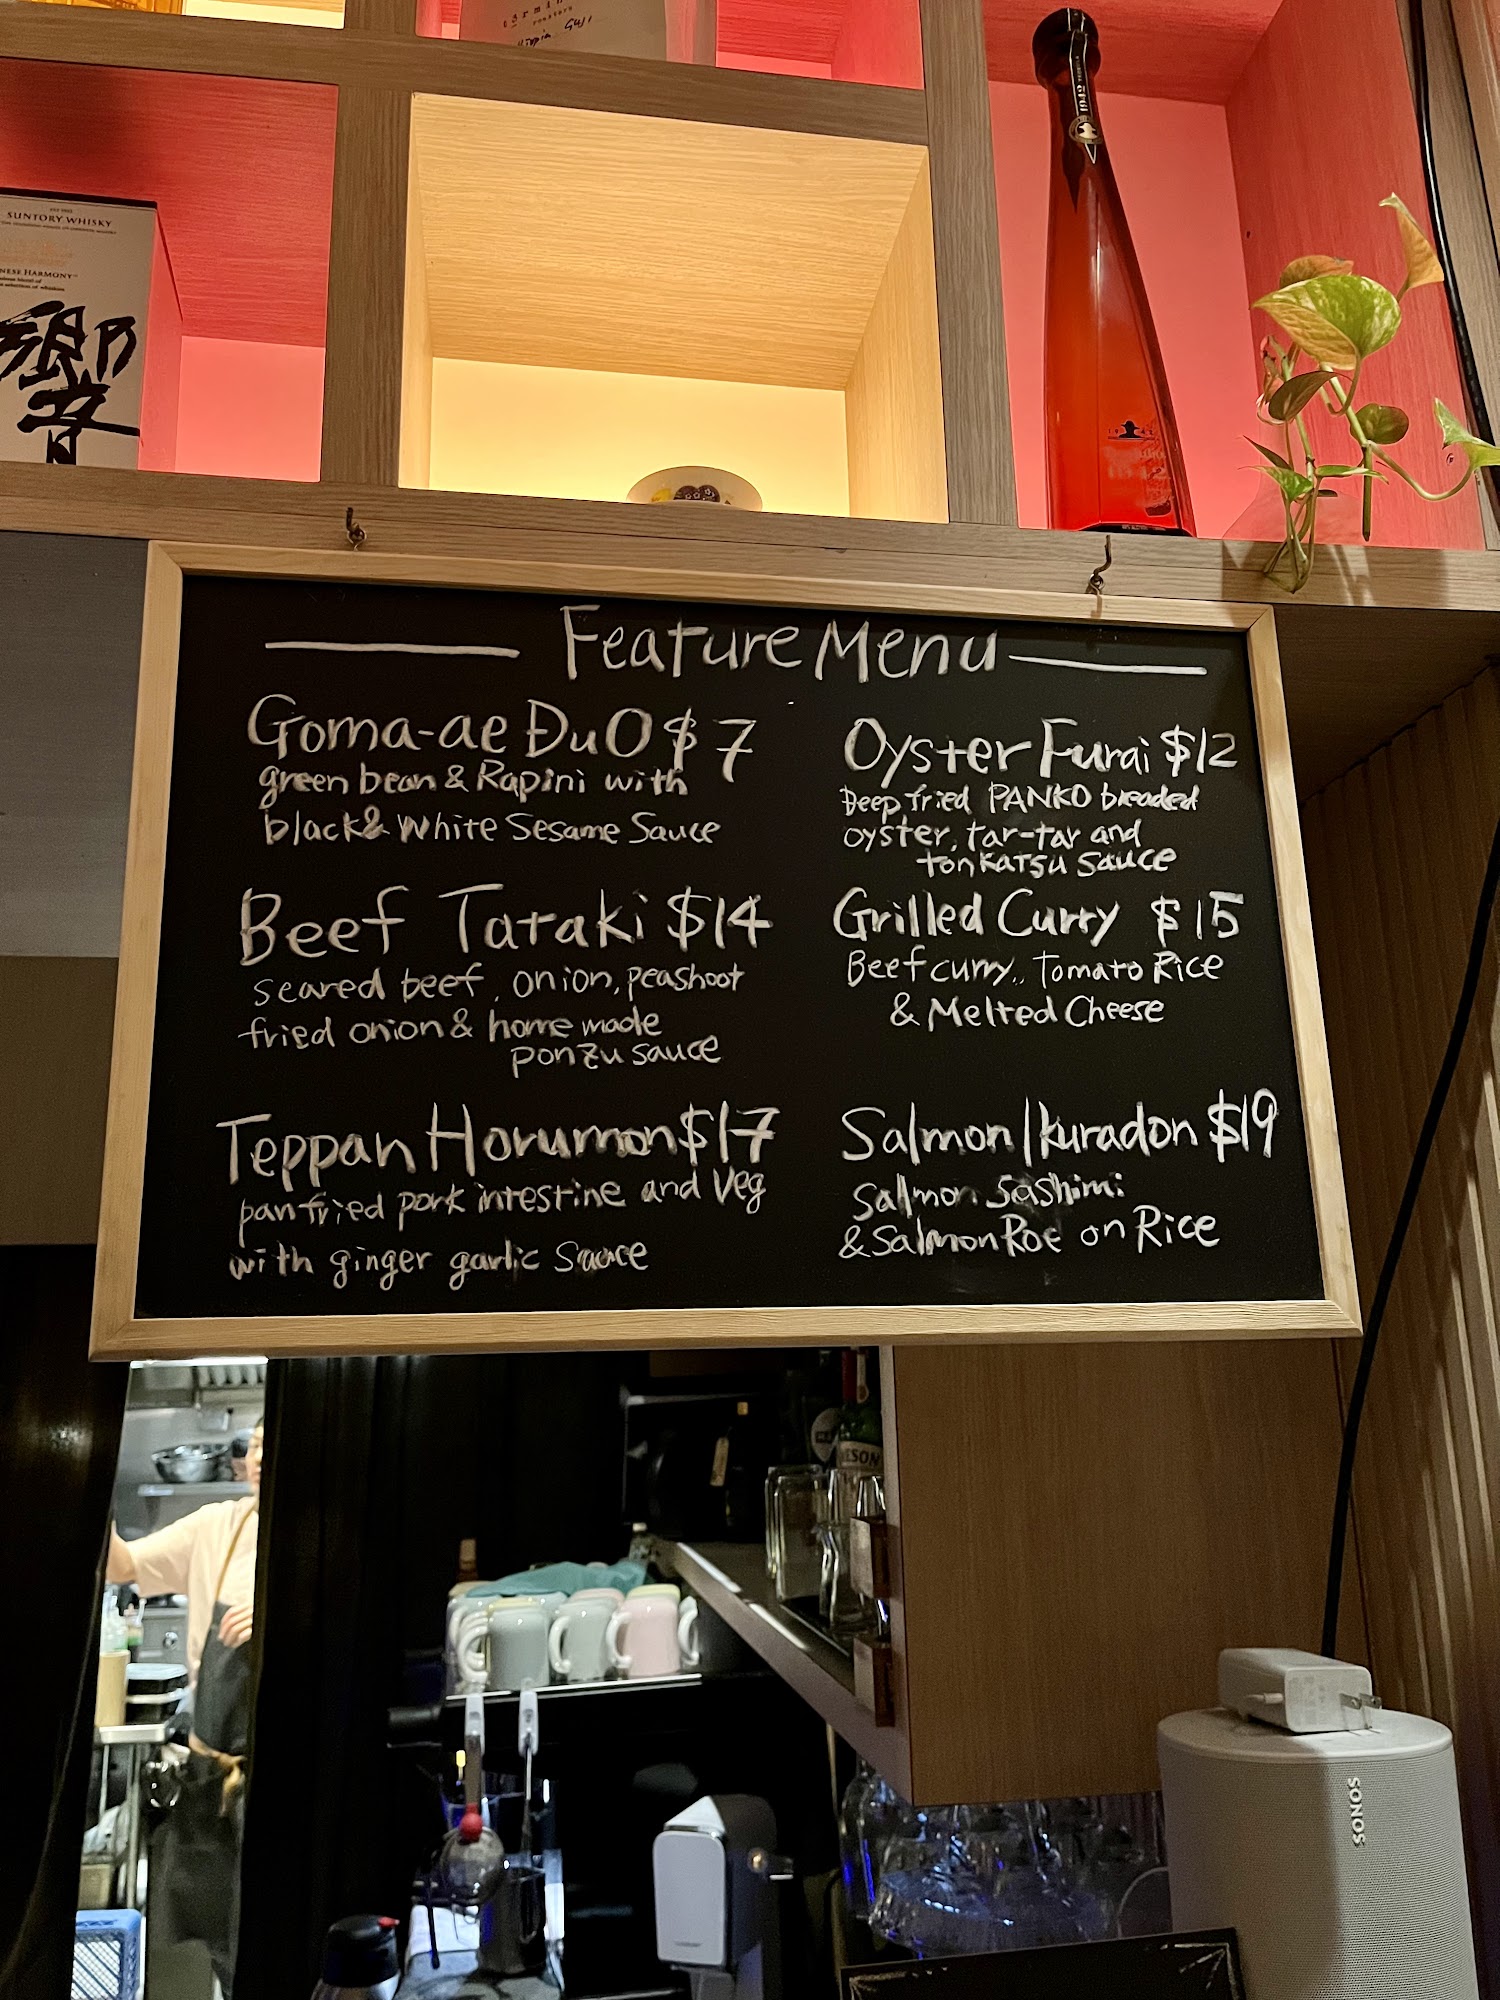 tarmin
roasters
SUNTORY WHISKY
NESE HARMONY
響
1942
Feature Menu
Goma-ae Duo $7
green bean & Rapini with
black & white Sesame Sauce
Beef Tataki $14
seared beef, onion, peashoot
fried onion & home made
ponzu sauce
Teppan Horumon $17
panfried pork intestine and veg
with ginger garlic sauce
Oyster Furai $12
Deep fried PANKO breaded
oyster, tar-tar and
tonkatsu sauce
Grilled Curry $15
Beef curry, Tomato Rice
& Melted Cheese
Salmon Ikuradon $19
Salmon Sashimi
& Salmon Roe on Rice
SONOS